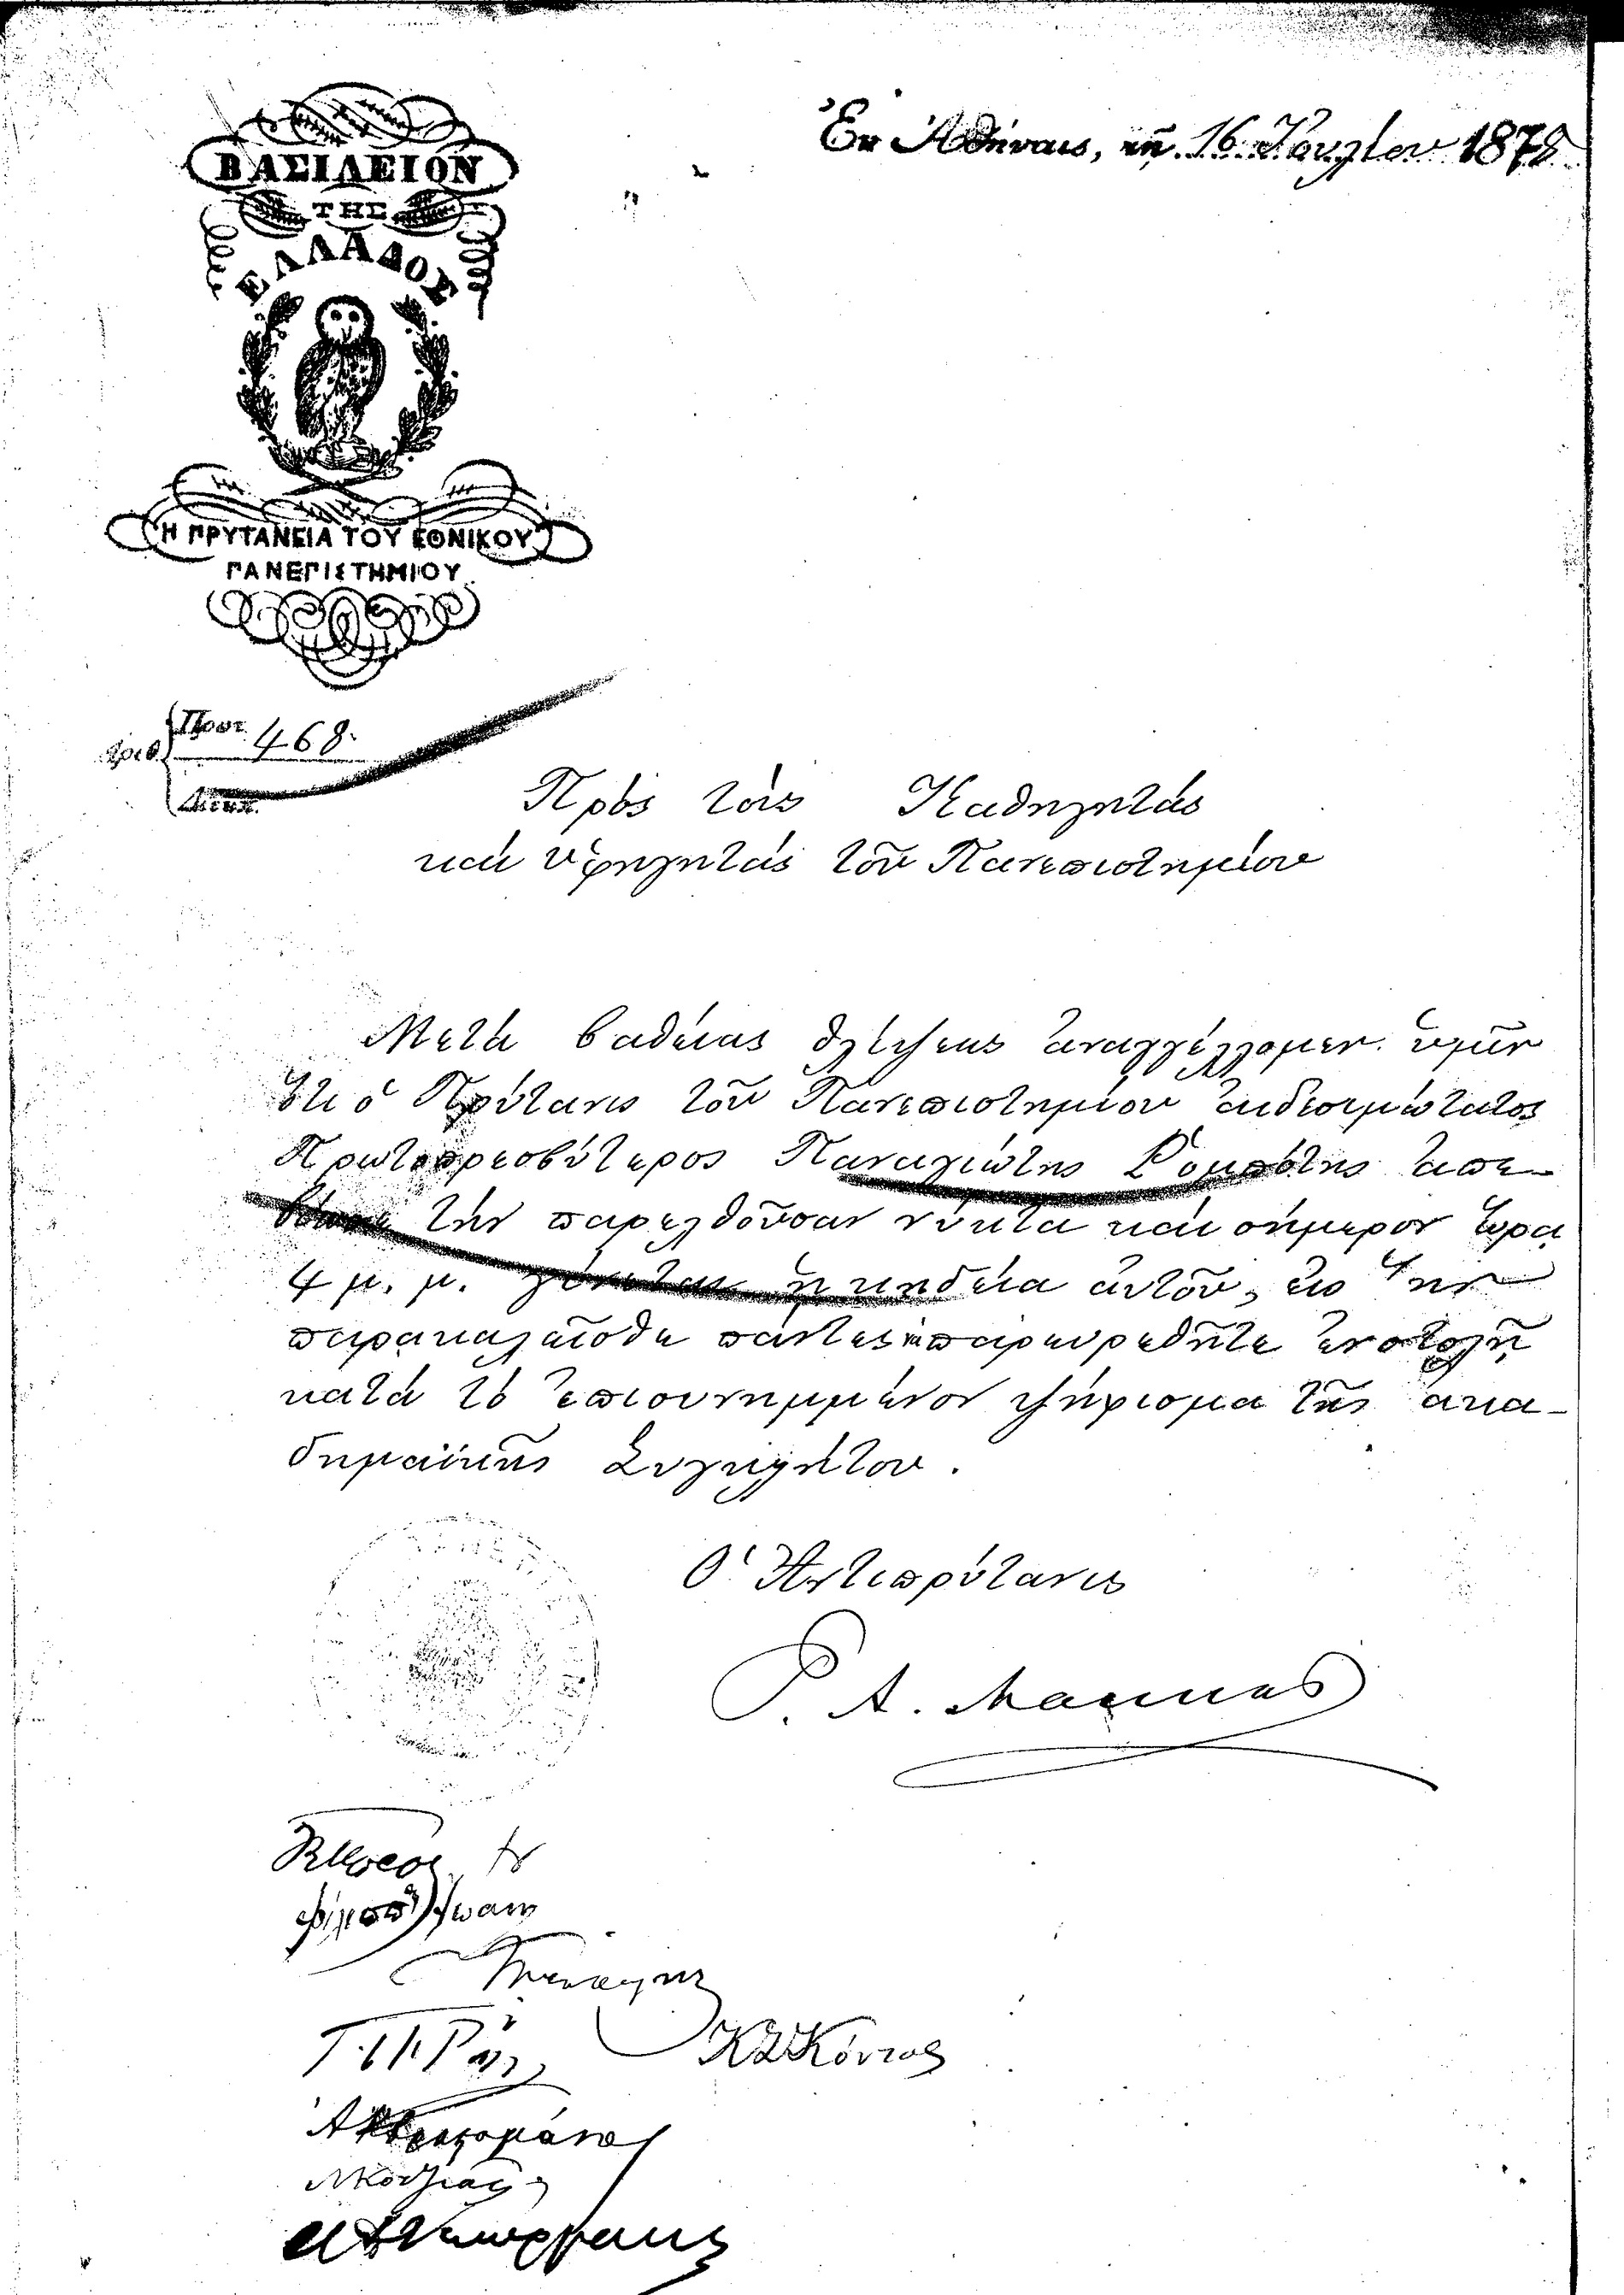 Ἐν Ἀθήναις, τῇ 16 Ἰουλίου 1878
ΒΑΣΙΛΕΙΟΝ
ΤΗΣ
ΕΛΛΑΔΟΣ
Η ΠΡΥΤΑΝΕΙΑ ΤΟΥ ΕΘΝΙΚΟΥ
ΠΑΝΕΠΙΣΤΗΜΙΟΥ
Πρωτ. 468.
Ἀριθ.
Διεκπ.
Πρὸς τοὺς Καθηγητὰς
καὶ ὑφηγητὰς τοῦ Πανεπιστημίου
Μετὰ βαθείας θλίψεως ἀναγγέλλομεν ὑμῖν
ὅτι ὁ Πρύτανις τοῦ Πανεπιστημίου αἰδεσιμώτατος
Πρωτοπρεσβύτερος Παναγιώτης Ῥομπότης ἀπε-
βίωσε τὴν παρελθοῦσαν νύκτα καὶ σήμερον ὥρᾳ
4 μ. μ. γίνεται ἡ κηδεία αὐτοῦ, εἰς ἣν
παρακαλεῖσθε πάντες ἵνα παρευρεθῆτε ἐν στολῇ
κατὰ τὸ ἐπισυνημμένον ψήφισμα τῆς ἀκα-
δημαϊκῆς Συγκλήτου.
Ὁ Ἀντιπρύτανις
Ρ. Α.
Φίλιππ Ἰωάν
Κ Σ Κόντος